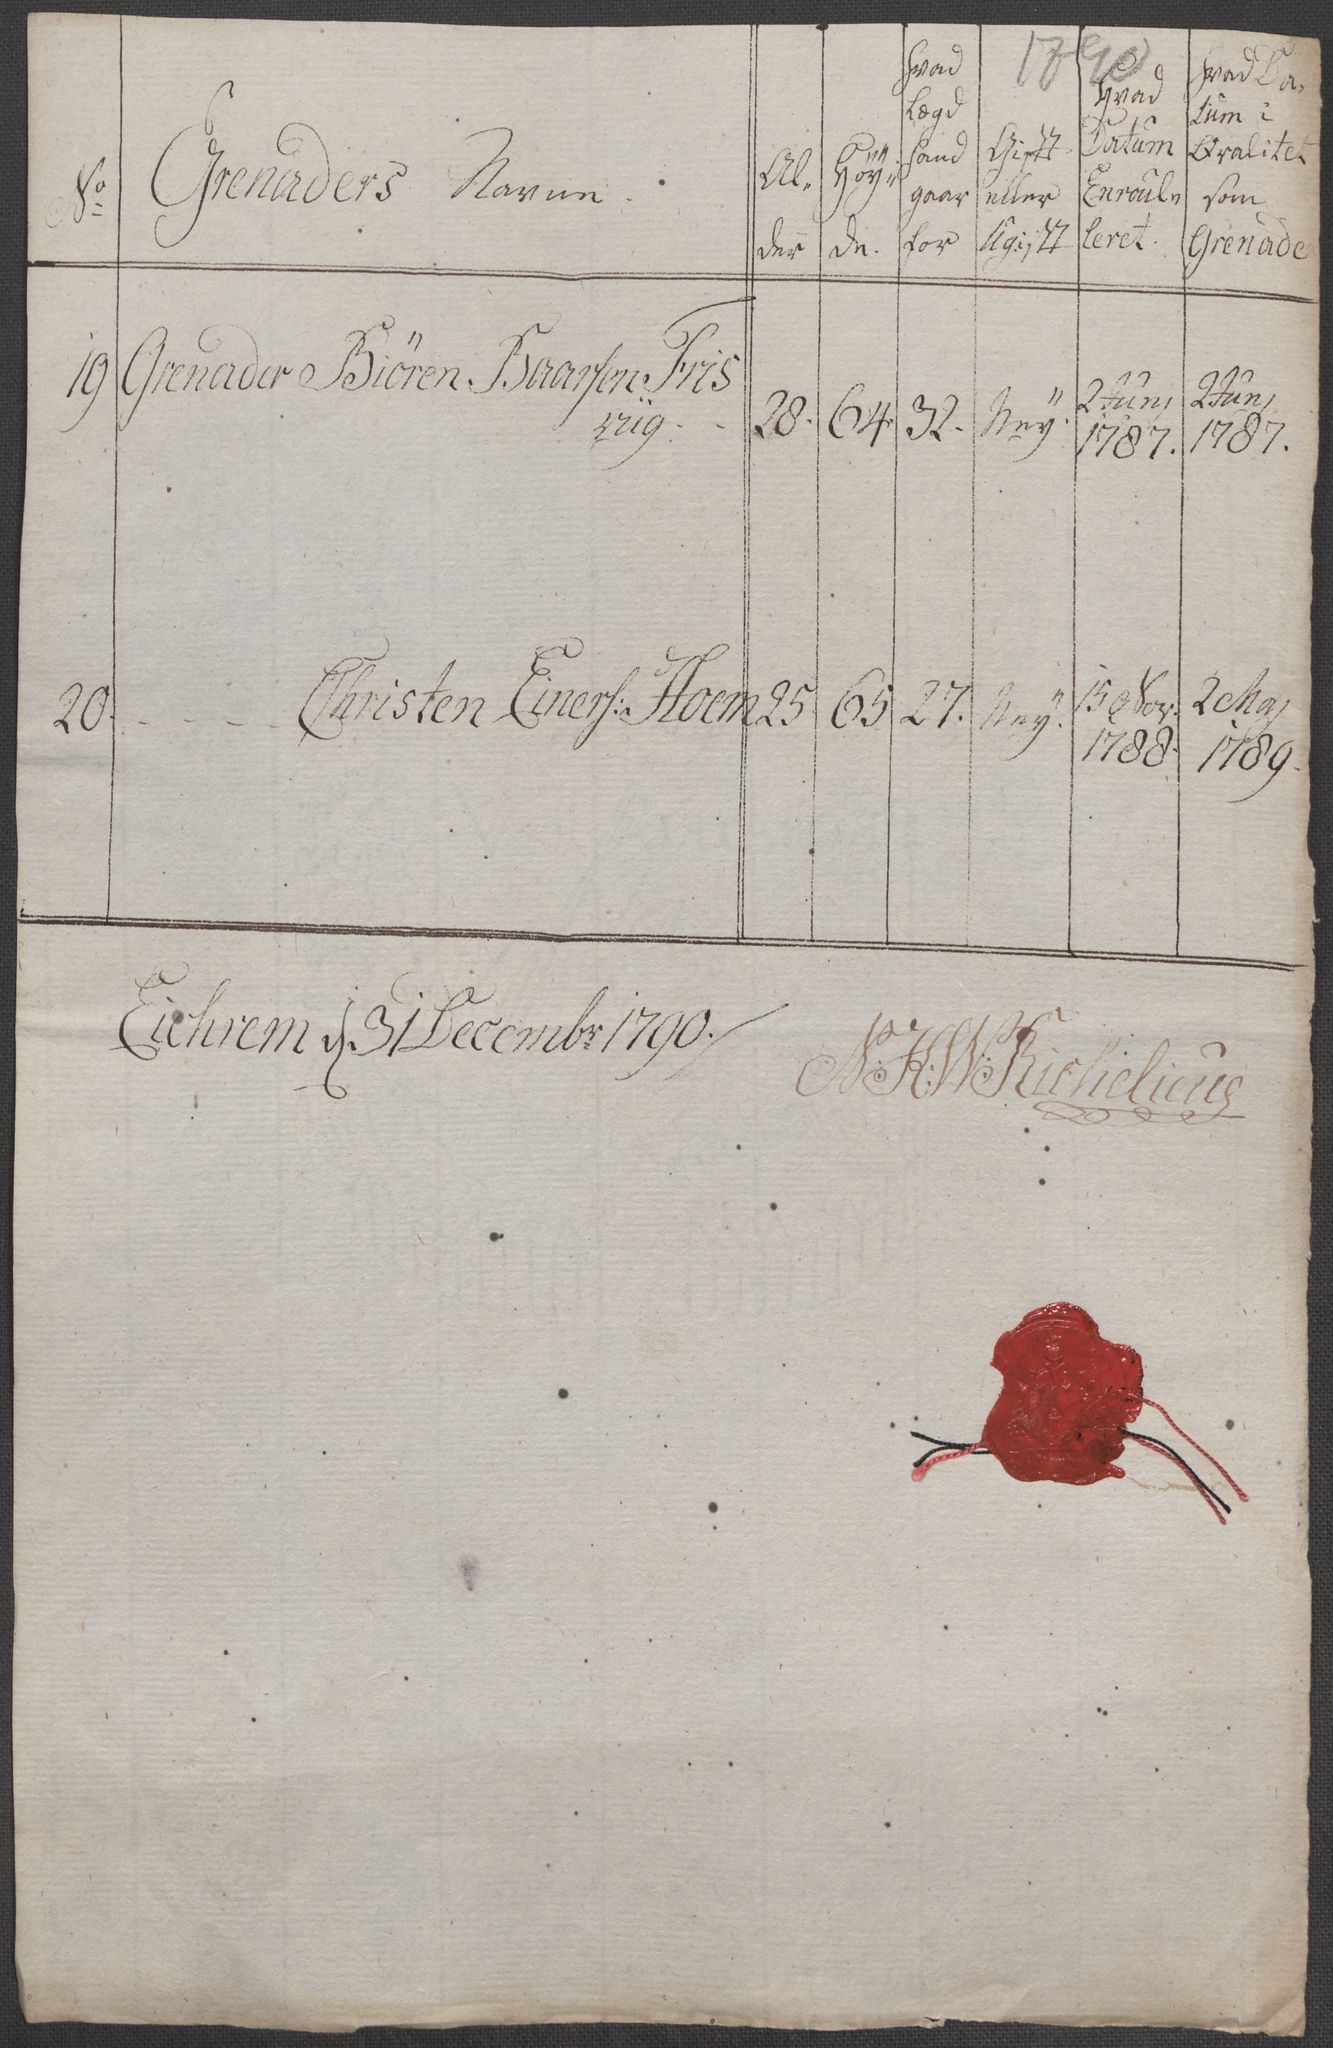 1790
No
Grenaders Navne.
Al„
der
Höy„
de.
hvad
Lægd
hand
gaar
for
Gift
eller
Ugift
Hvad
Datum
Enroul„
leret.
hvad Da„
tum i
Qvalitet
som
Grenade
19 Grenader Biören Baarsen Fris
rüg. 28. 64. 32. Ney. 2 Juni 1787. 2 Juni 1787.
20. - - - - Christen Einers: Hoem 25 65 27. Ney. 15 Nov: 1788. 2 Maj 1789.
Eichrem d. 31 Decembr 1790.
N: H: W: Richelieus